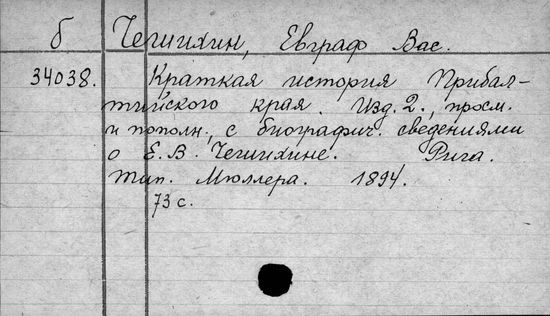 б Чешихин, Евграф Вас.
34038. Краткая история Прибал-
тийского края. Изд. 2., просм.
и пополн., с биографич. сведениями
о Е. В. Чешихине. Рига.
тип. Мюллера. 1894.
73 с.